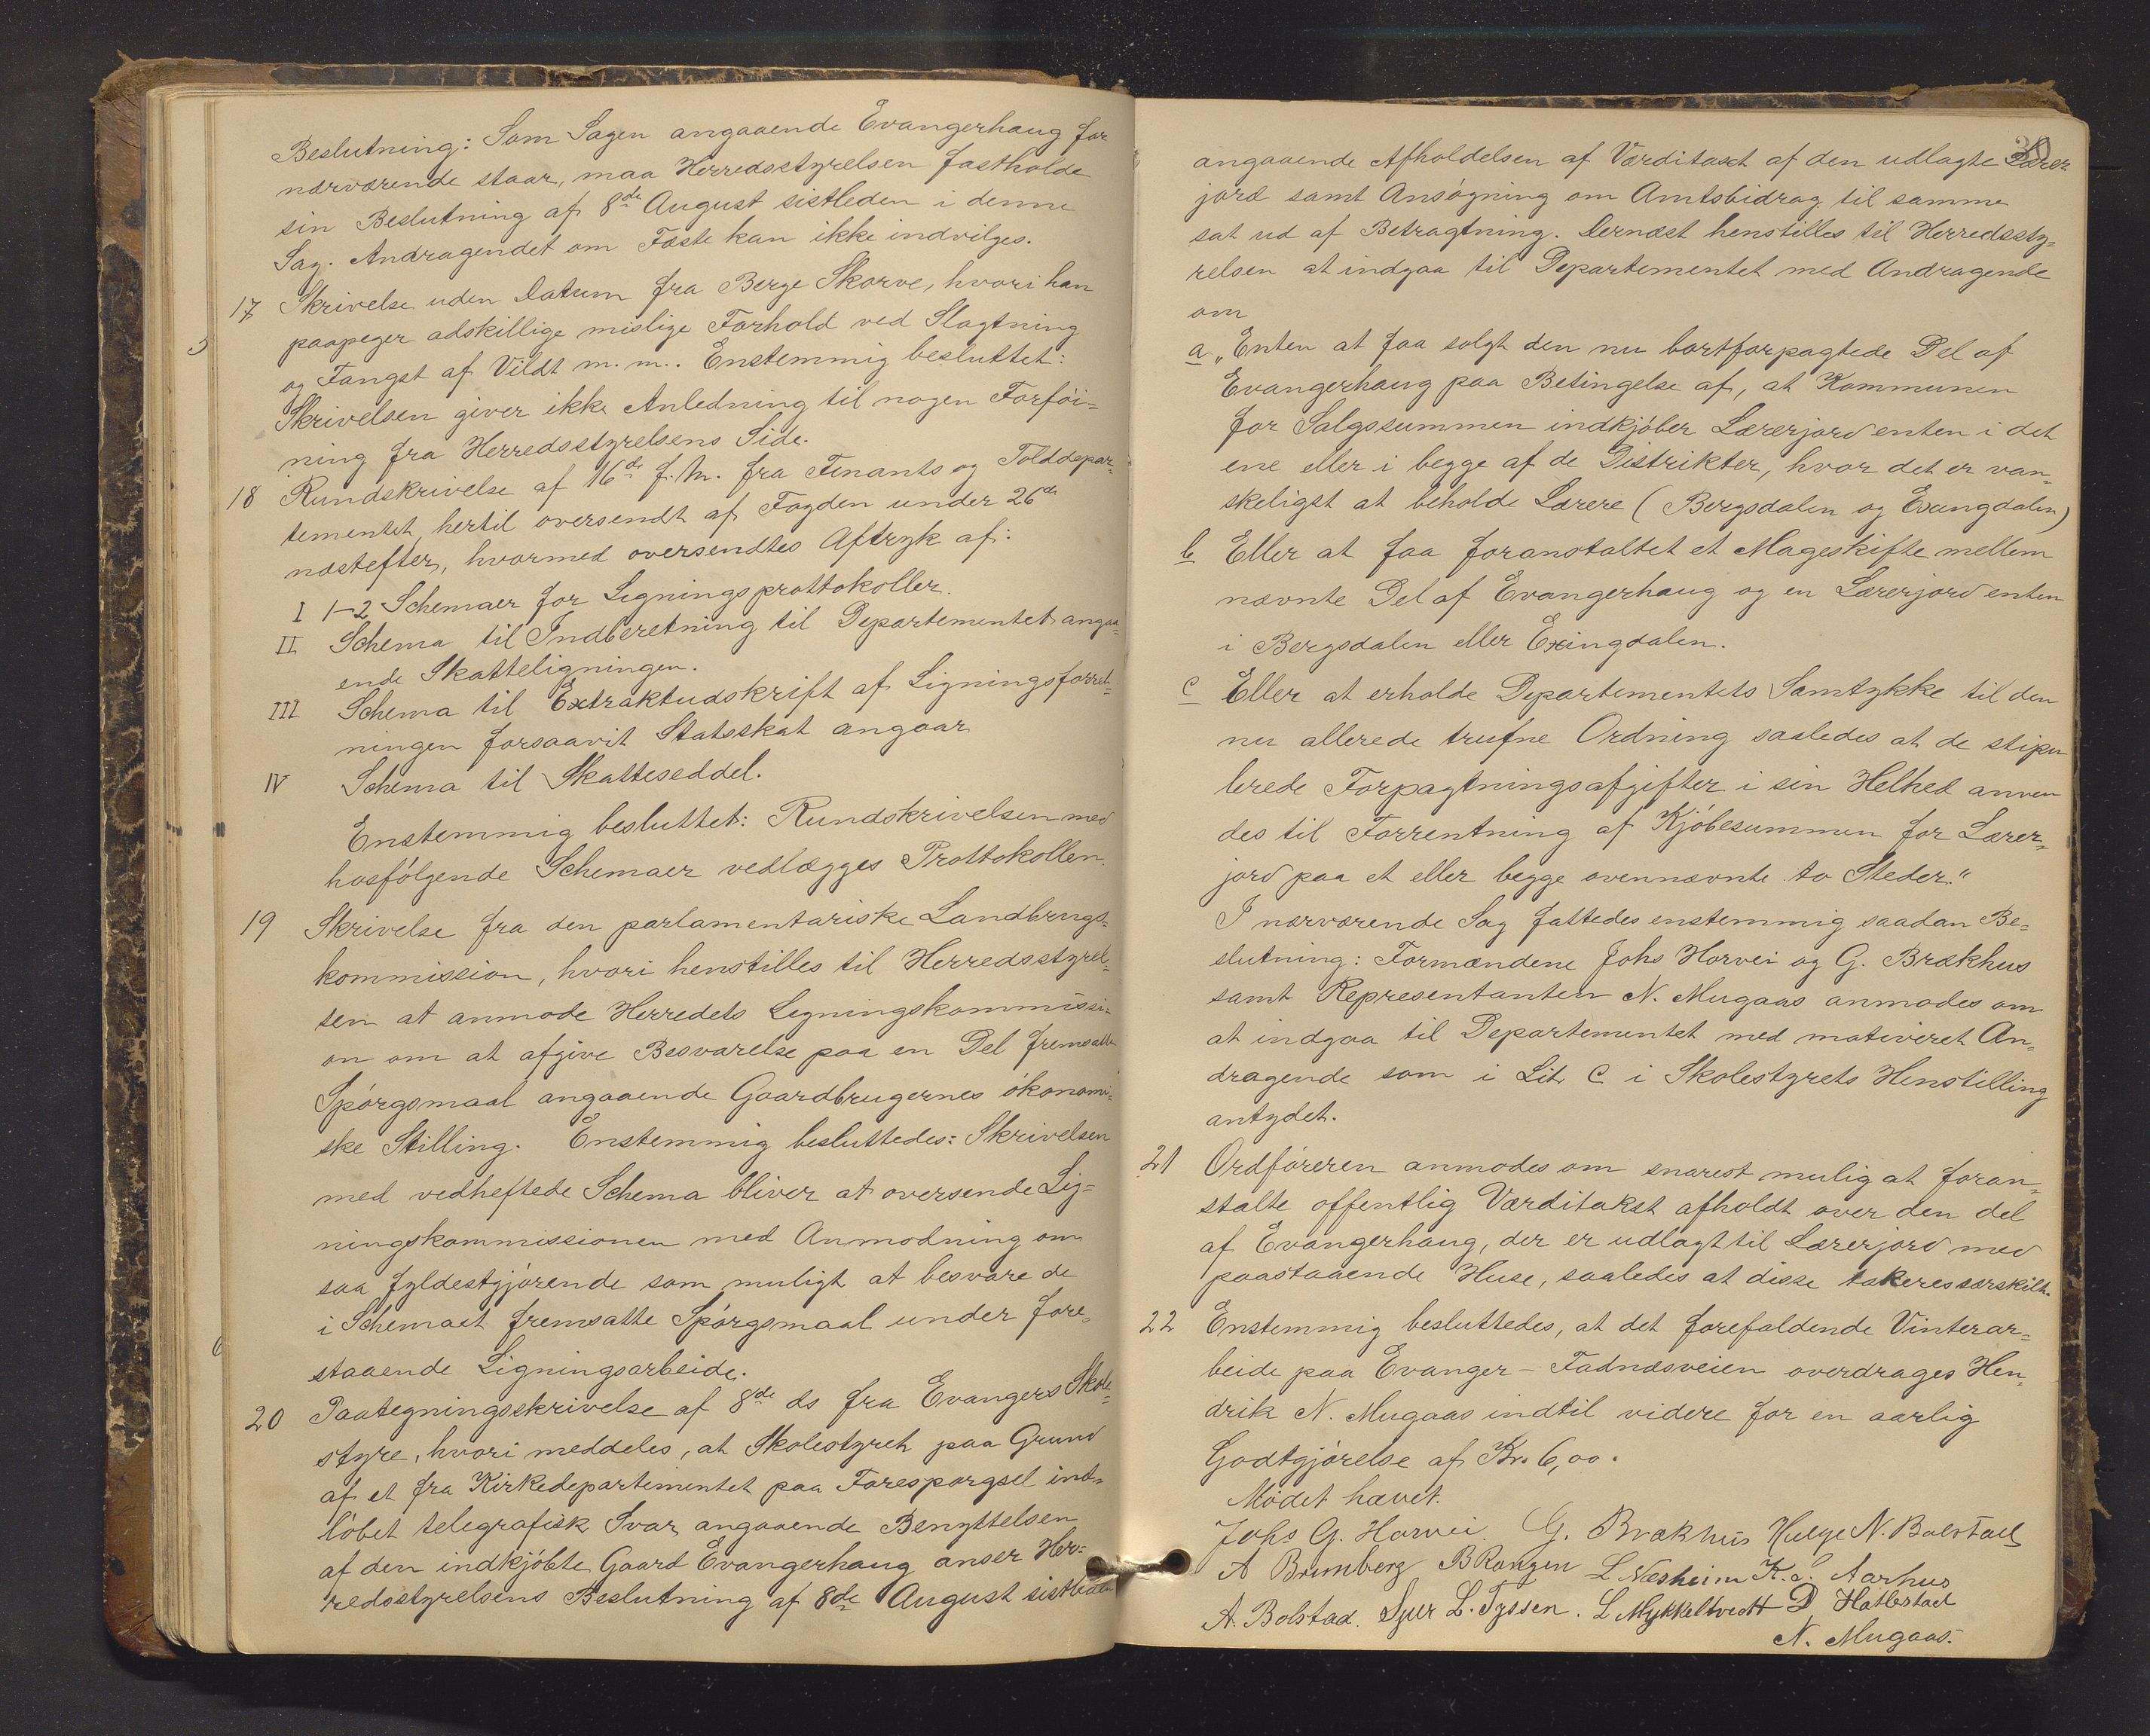 Beslutning: Som Sagen angaaende Evangerhaug for
nærværende staar, maa Herredsstyrelsen fastholde
sin Beslutning af 8de August sistleden i denne
Sag. Andragendet om Fæste kan ikke indvilges.
17 Skrivelse uden Datum fra Berge Skorve, hvori han
paapeger adskillige mislige Forhold ved Slagtning
og Fangst af Vildt m.m.. Enstemmig besluttet:
Skrivelsen giver ikke Anledning til nogen Forföi=
ning fra Herredsstyrelsens Side.
18 Rundskrivelse af 16de f. M. fra Finants og Tolddepar=
tementet, hertil oversendt af Fogden under 26de
næstefter, hvormed oversendtes Aftryk af:
I 1-2 Schemaer for Ligningsprottokoller.
II Schema til Indberetning til Departementet angaa=
ende Skatteligningen.
III Schema til Extraktudskrift af Ligningsforret=
ningen forsaavit Statsskat angaar
IV Schema til Skatteseddel.
Enstemmig besluttet: Rundskrivelsen med
hosfølgende Schemaer vedlægges Prottokollen.
19 Skrivelse fra den parlamentariske Landbrugs=
kommission, hvori henstilles til Herredsstyrel=
sen at anmode Herredets Ligningskommissi=
on om at afgive Besvarelse paa en Del fremsatte
Spörgsmaal angaaende Gaardbrugernes ökonomi=
ske Stilling. Enstemmig besluttedes: Skrivelsen
med vedheftede Schema bliver at oversende Lig=
ningskommissionen med Anmodning om
saa fyldestgjörende som muligt at besvare de
i Schemaet fremsatte Spörgsmaal under fore=
staaende Ligningsarbeide.
20 Paategningsskrivelse af 8de ds fra Evangers Skole=
styre, hvori meddeles, at Skolestyret paa Grund
af et fra Kirkedepartementet paa Forespørgsel ind=
löbet telegrafisk Svar angaaende Benyttelsen
af den indkjöbte Gaard Evangerhaug anser Her=
redsstyrelsens Beslutning af 8de August sistleden
30
angaaende Afholdelsen af Værditaxt af den udlagte Lærer=
jord samt Ansögning om Amtsbidrag til samme
sat ud af Betragtning. Dernæst henstilles til Herredssty=
relsen at indgaa til Departementet med Andragende
om
a „Enten at faa solgt den nu bortforpagtede Del af
Evangerhaug paa Betingelse af, at Kommunen
for Salgssummen indkjöber Lærerjord enten i det
ene eller i begge af de Distrikter, hvor det er van=
skeligst at beholde Lærere (Bergsdalen og Exingdalen)
b Eller at faa foranstaltet et Mageskifte mellem
nævnte Del af Evangerhaug og en Lærerjord enten
i Bergsdalen eller Exingdalen.
c Eller at erholde Departementets Samtykke til den
nu allerede trufne Ordning saaledes at de stipu
lerede Forpagtningsafgifter i sin Helhed anven
des til Forrentning af Kjöbesummen for Lærer=
jord paa et eller begge ovennævnte to Steder."
I nærværende Sag fattedes enstemmig saadan Be=
slutning: Formændene Johs Horvei og G. Brækhus
samt Representanten N. Mugaas anmodes om
at indgaa til Departementet med motiveret An=
dragende som i Lit. C i Skolestyrets Henstilling
antydet.
21 Ordföreren anmodes om snarest mulig at foran=
stalte offentlig Værditakst afholdt over den del
af Evangerhaug, der er udlagt til Lærerjord med
paastaaende Huse, saaledes at disse takseres særskilt.
22 Enstemmig besluttedes, at det forefaldende Vinterar=
beide paa Evanger - Fadnæsveien overdrages Hen=
drik N. Mugaas indtil videre for en aarlig
Godtgjörelse af Kr. 6,00.
Mödet hævet.
Johs G. Horvei. G. Brækhus Helge N. Bolstad
A Brunborg B Rongen L Næsheim K. L. Aarhus
A. Bolstad. Sjur L. Tyssen. L Mykkeltvedt D Hatlestad
N. Mugaas.